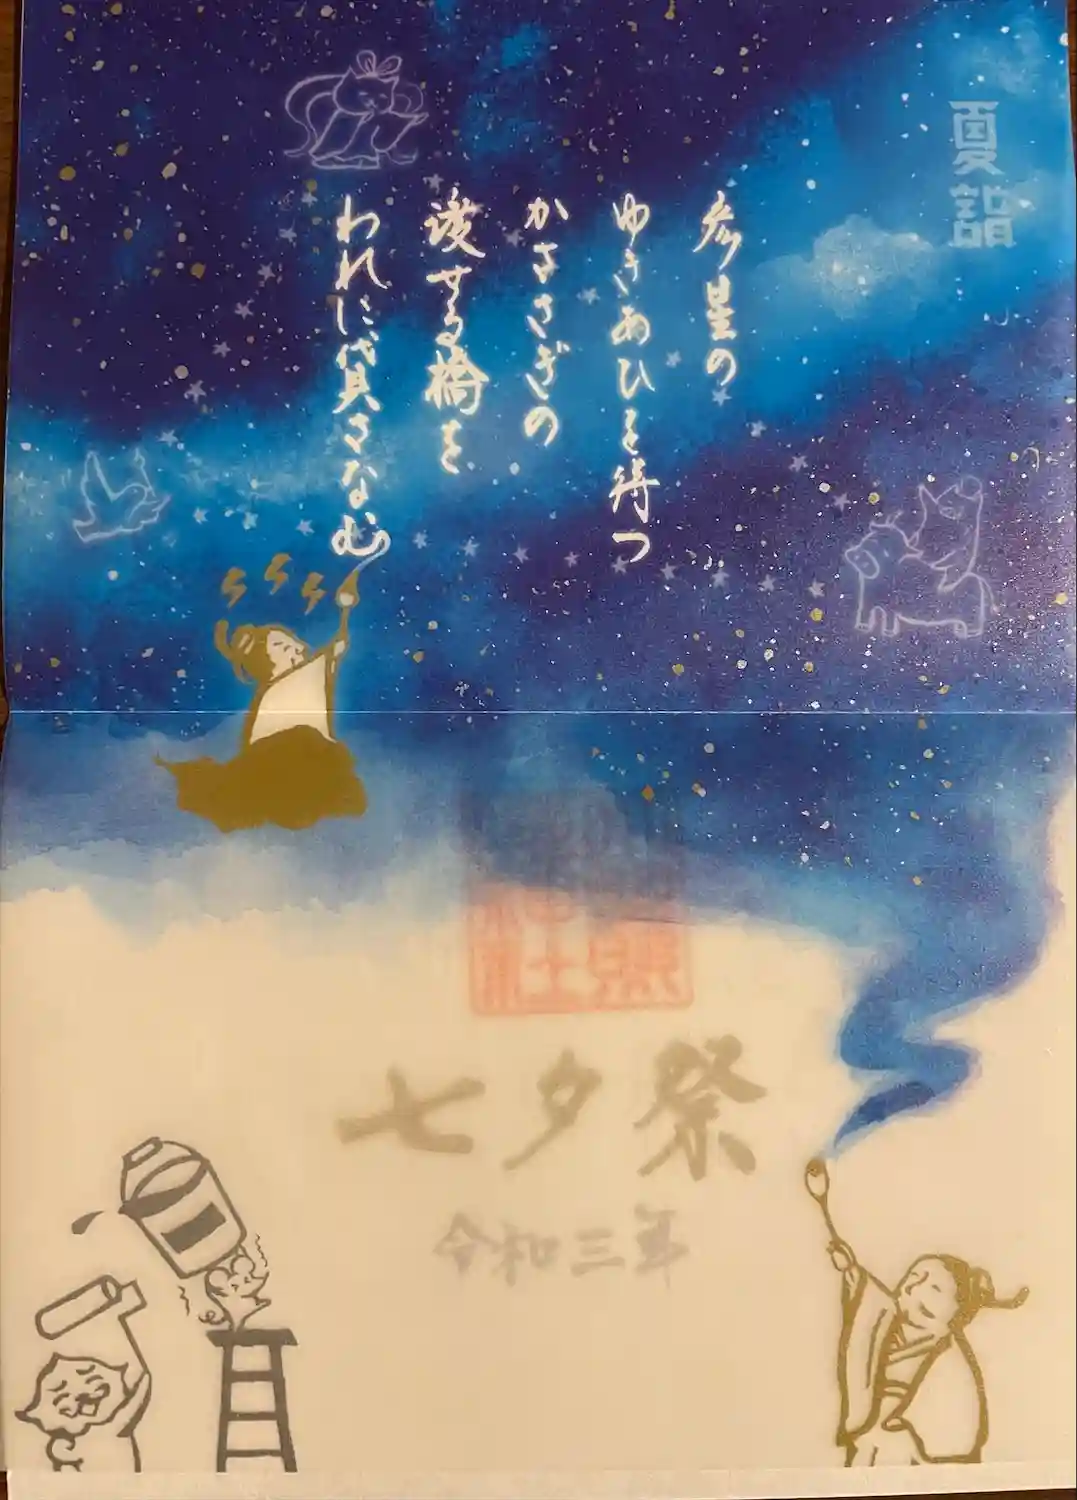 夏詣
彦星の
ゆきあひを待つ
かささぎの
渡せる橋を
われに貸さなむ
七夕祭
令和三年